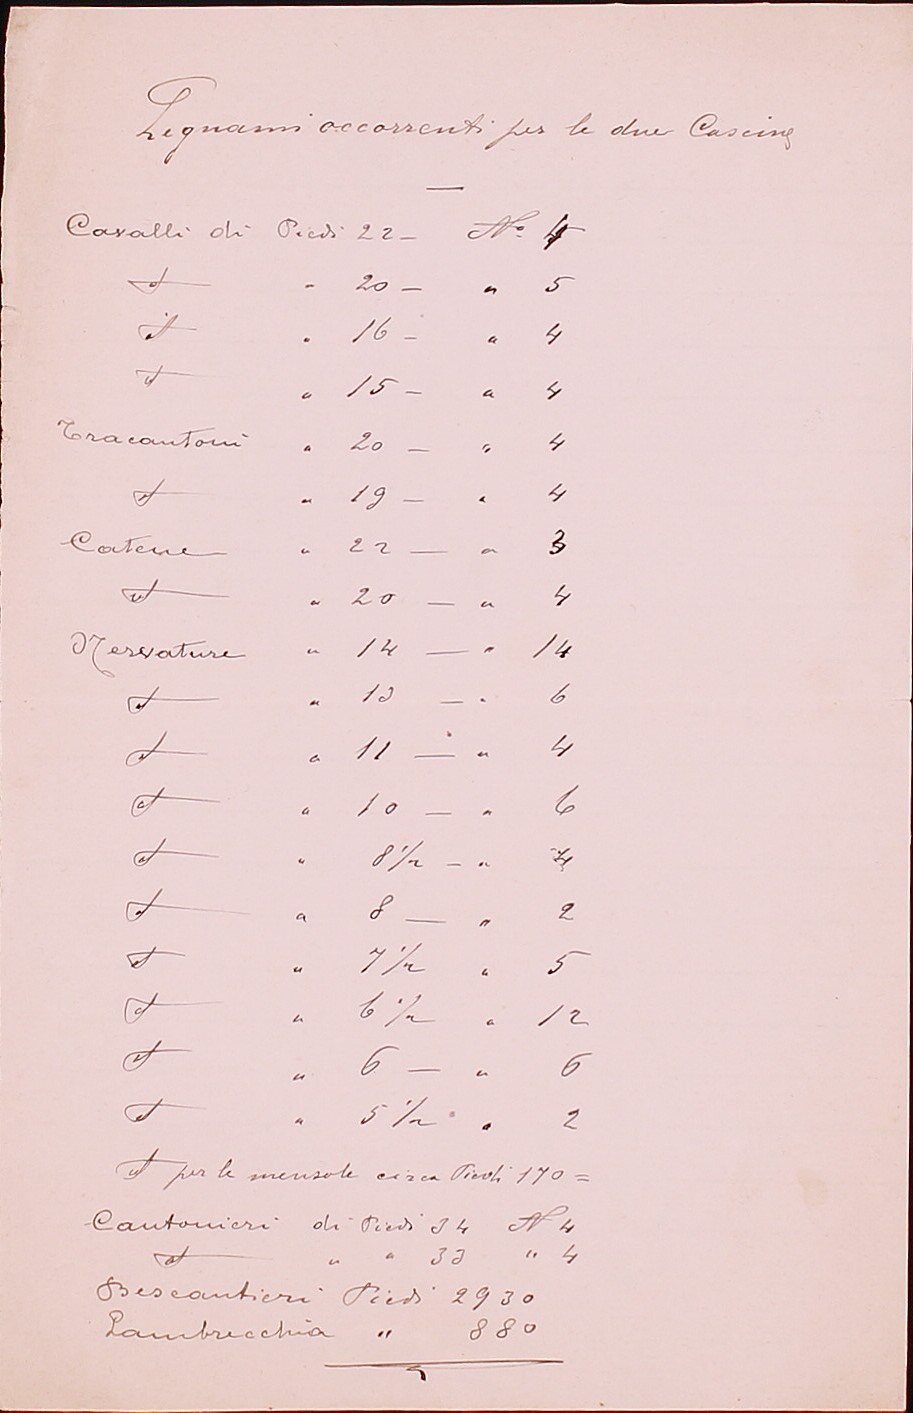 Legnami occorrenti per le due Cascine
Cavalli di Piedi 22 — N.º 4
d " 20 — " 5
d " 16 — " 4
d " 15 — " 4
Tracantoni " 20 — " 4
d " 19 — " 4
Catene " 22 — " 3
d " 20 — " 4
Nervature " 14 — " 14
d " 13 — " 6
d " 11 — " 4
d " 10 — " 6
d " 8 1/2 — "
d " 8 — " 2
d " 7 1/2 " 5
d " 6 1/2 " 12
d " 6 — " 6
d " 5 1/2 " 2
d per le mensole circa Piedi 170 =
Cantonieri di Piedi 34 N 4
d " " 33 " 4
Bescantieri Piedi 2930
Lambrecchia " 880